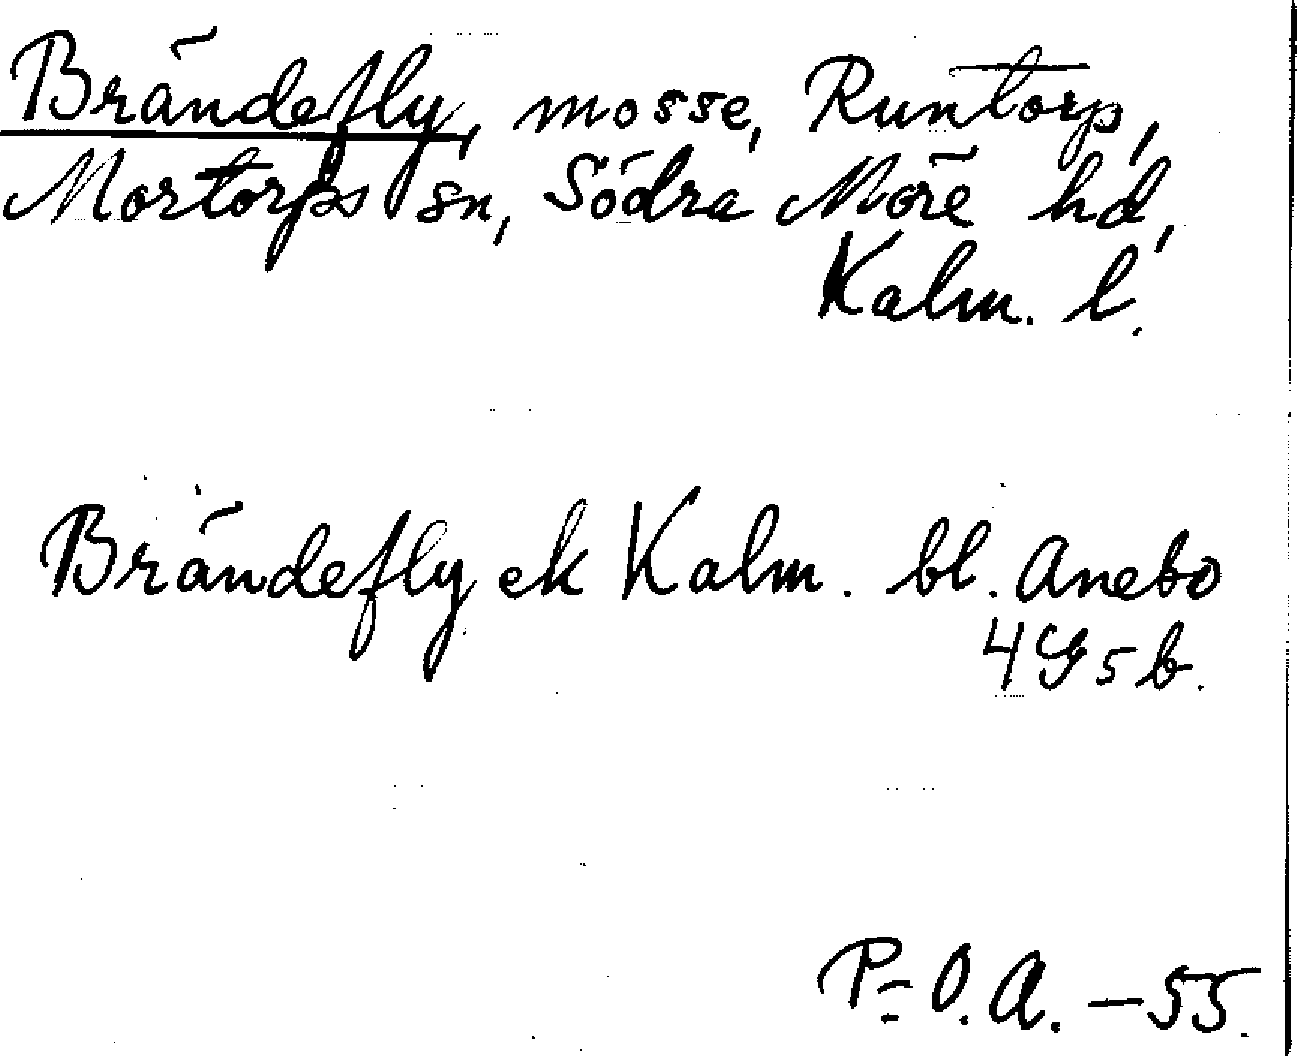 Brändefly, mosse, Runtorp,
Mortorps sn, Södra Möre hd,
Kalm. l.
Brändefly ek Kalm. bl. Anebo
4G5b.
P-O.A. -55.